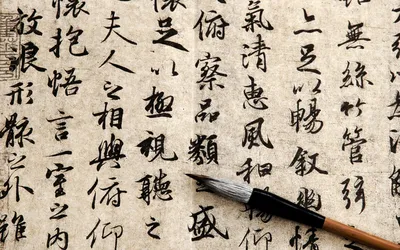 無絲竹管弦
足以暢敘幽情
氣清惠風和暢仰
俯察品類之盛
足以極視聽之
夫人之相與俯仰
懷抱悟言一室之內
放浪形骸之外雖